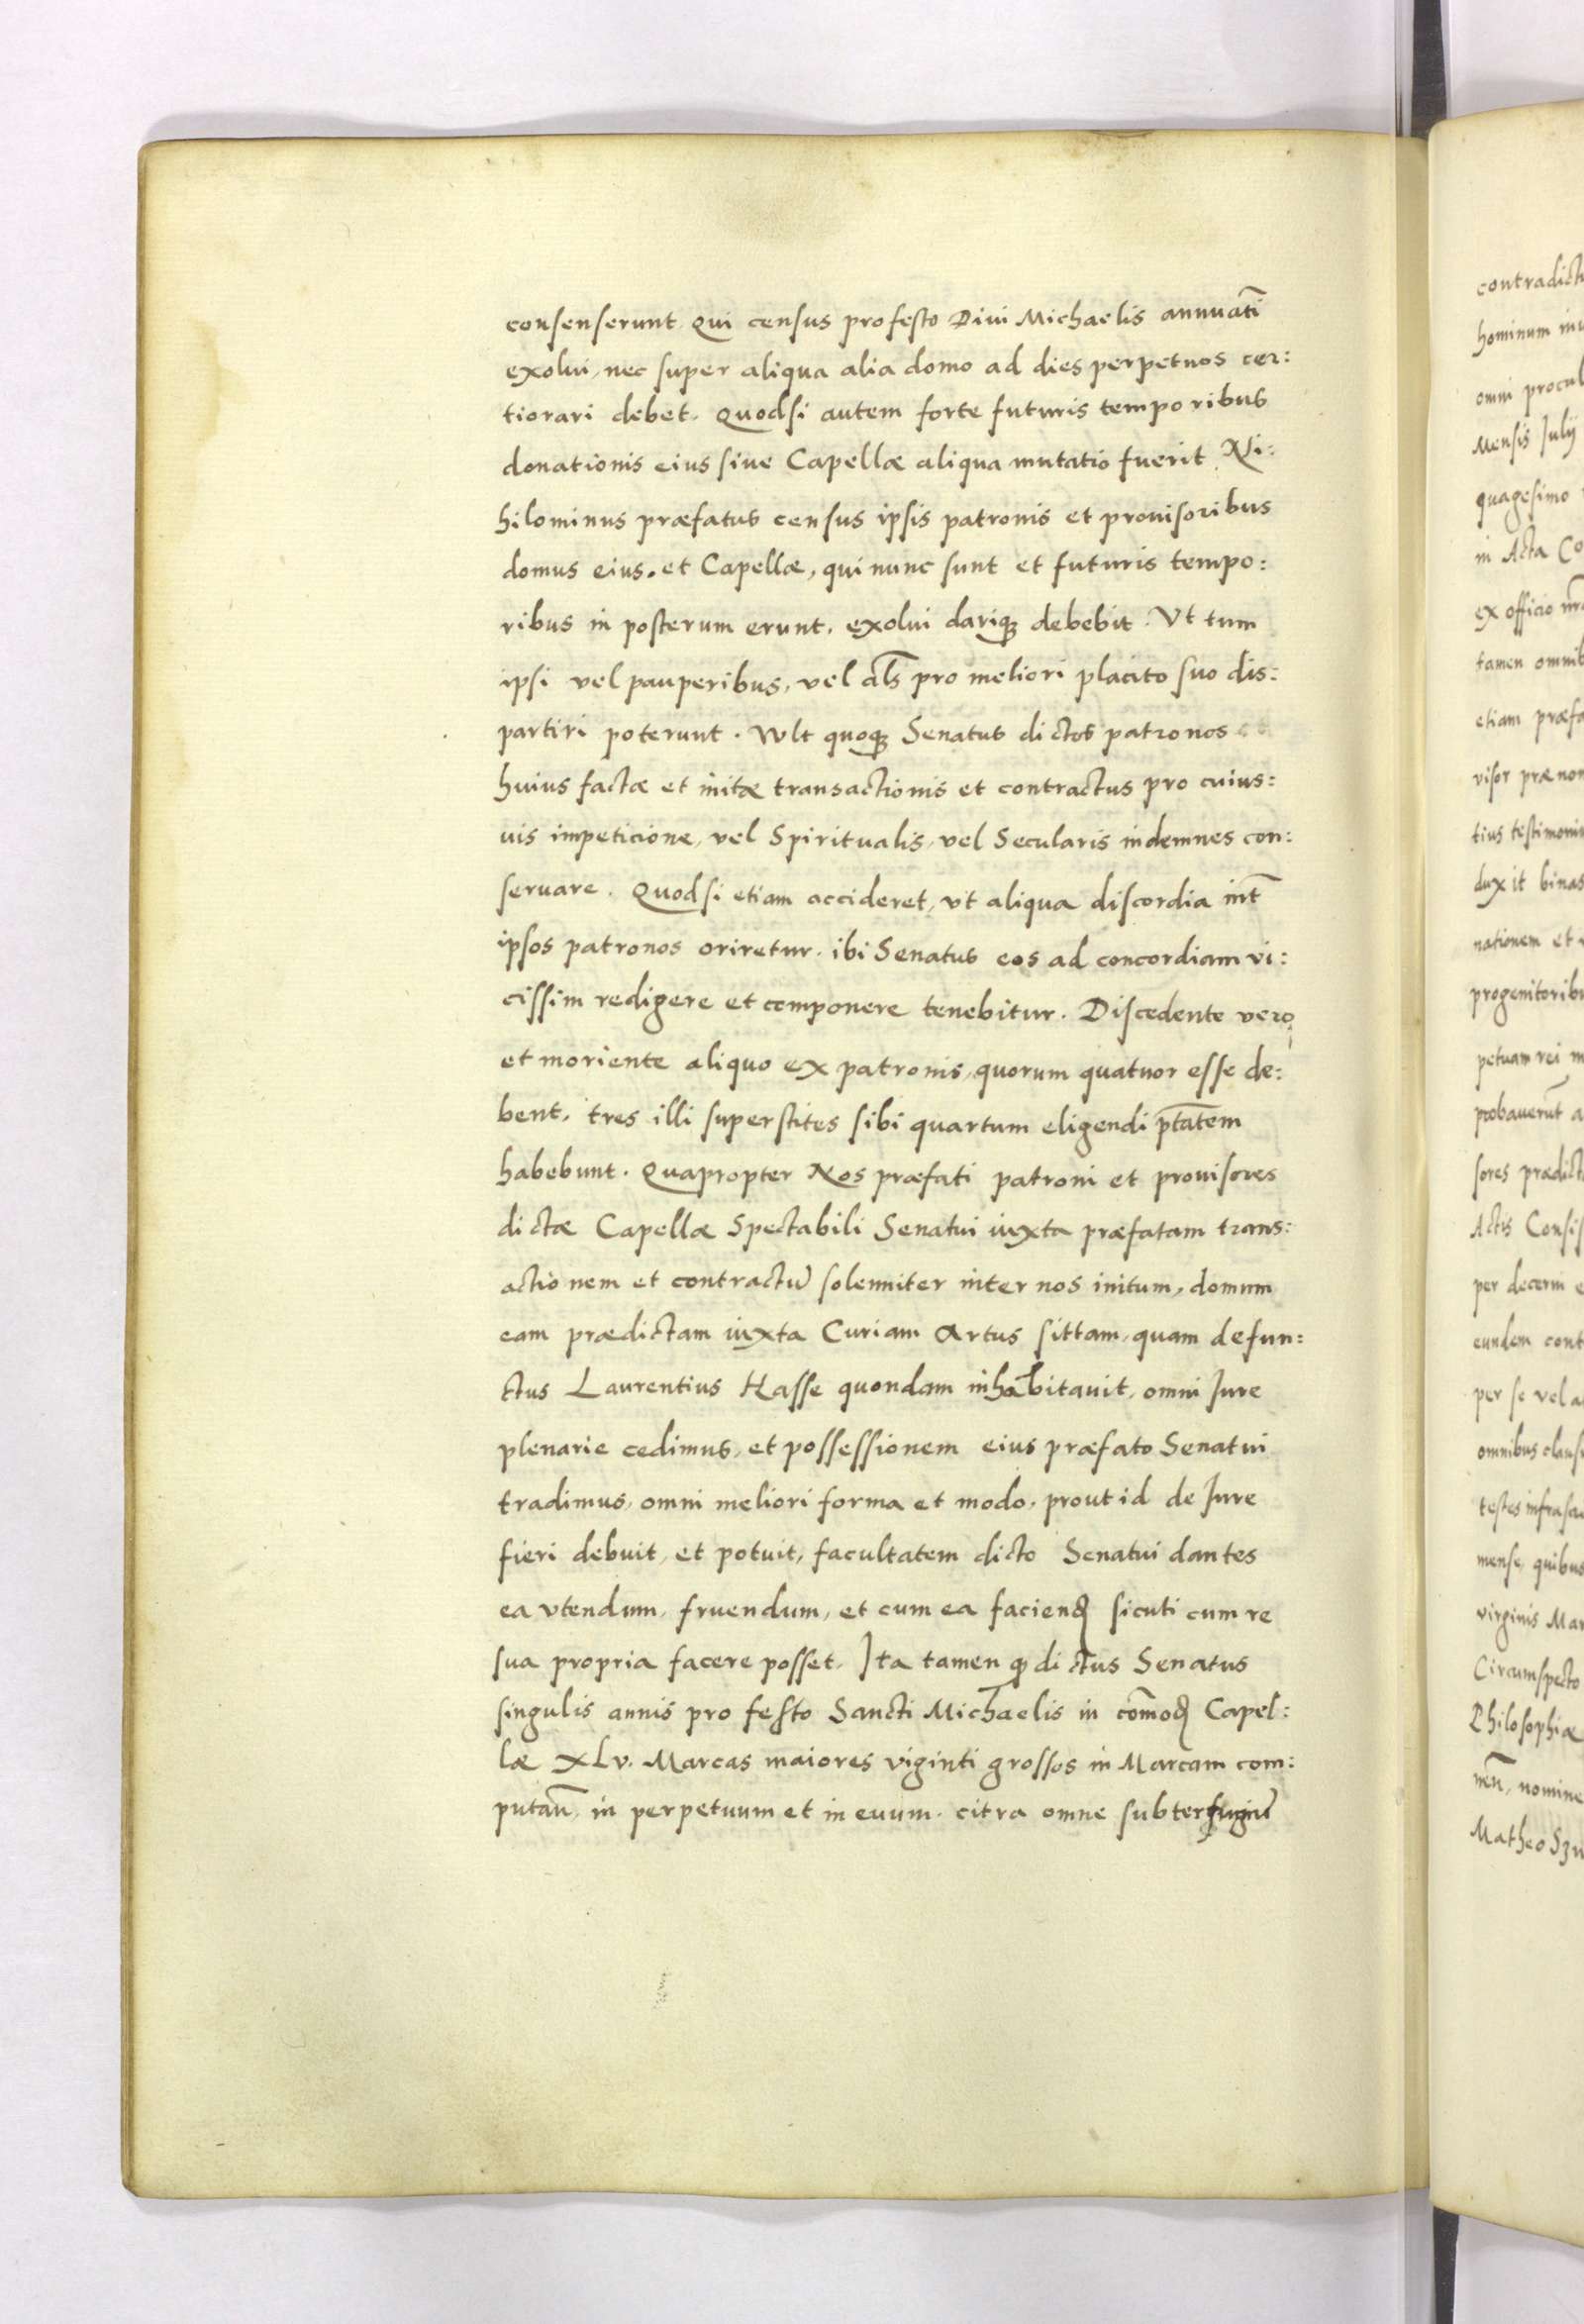 consenserunt. Qui census profesto Diui Michaelis annuatī
exolui, nec super aliqua alia domo ad dies perpetuos cer:
tiorari debet. Quodsi autem forte futuris temporibus
donationis eius siue Capellæ aliqua mutatio fuerit, Ni:
hilominus præfatus census ipsis patronis et prouisoribus
domus eius. et Capellæ, qui nunc sunt et futuris tempo:
ribus in posterum erunt, exolui dariqꝫ debebit. Vt tum
ipsi vel pauperibus, vel al̄s pro meliori placito suo dis:
partiri poterunt. Wlt quoqꝫ Senatus dictos patronos
huius factæ et initæ transactionis et contractus pro cuius:
uis impeticione, vel Spiritualis, vel Secularis indemnes con:
seruare. Quodsi etiam accideret, vt aliqua discordia int̄
ipsos patronos oriretur. ibi Senatus eos ad concordiam vi:
cissim redigere et componere tenebitur. Discedente vero
et moriente aliquo ex patronis, quorum quatuor esse de:
bent, tres illi superstites sibi quartum eligendi pt̄atem
habebunt. Quapropter Nos præfati patroni et prouisores
dictæ Capellæ Spectabili Senatui iuxta præfatam trans:
actionem et contractū solenniter inter nos initum, domum
eam prædictam iuxta Curiam Artus sittam, quam defun:
ctus Laurentius Hasse quondam inhabitauit, omni Jure
plenarie cedimus, et possessionem eius præfato Senatui
tradimus, omni meliori forma et modo, prout id de Jure
fieri debuit, et potuit, facultatem dicto Senatui dantes
ea vtendum, fruendum, et cum ea faciendꝭ sicuti cum re
sua propria facere posset. Ita tamen ꝙ dictus Senatus
singulis annis pro festo Sancti Michaelis in com̄odꝭ Capel:
læ XLv. Marcas maiores viginti grossos in Marcam com:
putan̄, in perpetuum et in euum. citra omne subterfugiū
contradict
hominum
omni procul
Mensis Julij
quagesimo
in Acta Co
ex officio nr̄
tamen omnib
etiam præfa
visor præno
tius testimoni
duxit binas
nationem et
progenitorib
petuam rei m
probauerūt a
sores prædict
Actis Consis
per decerni e
eundem cont
per se vel a
omnibus claus
testes infrasc
mense, quibus
virginis Mar
Circumspecto
Philosophiæ
nomine
Matheo Szu